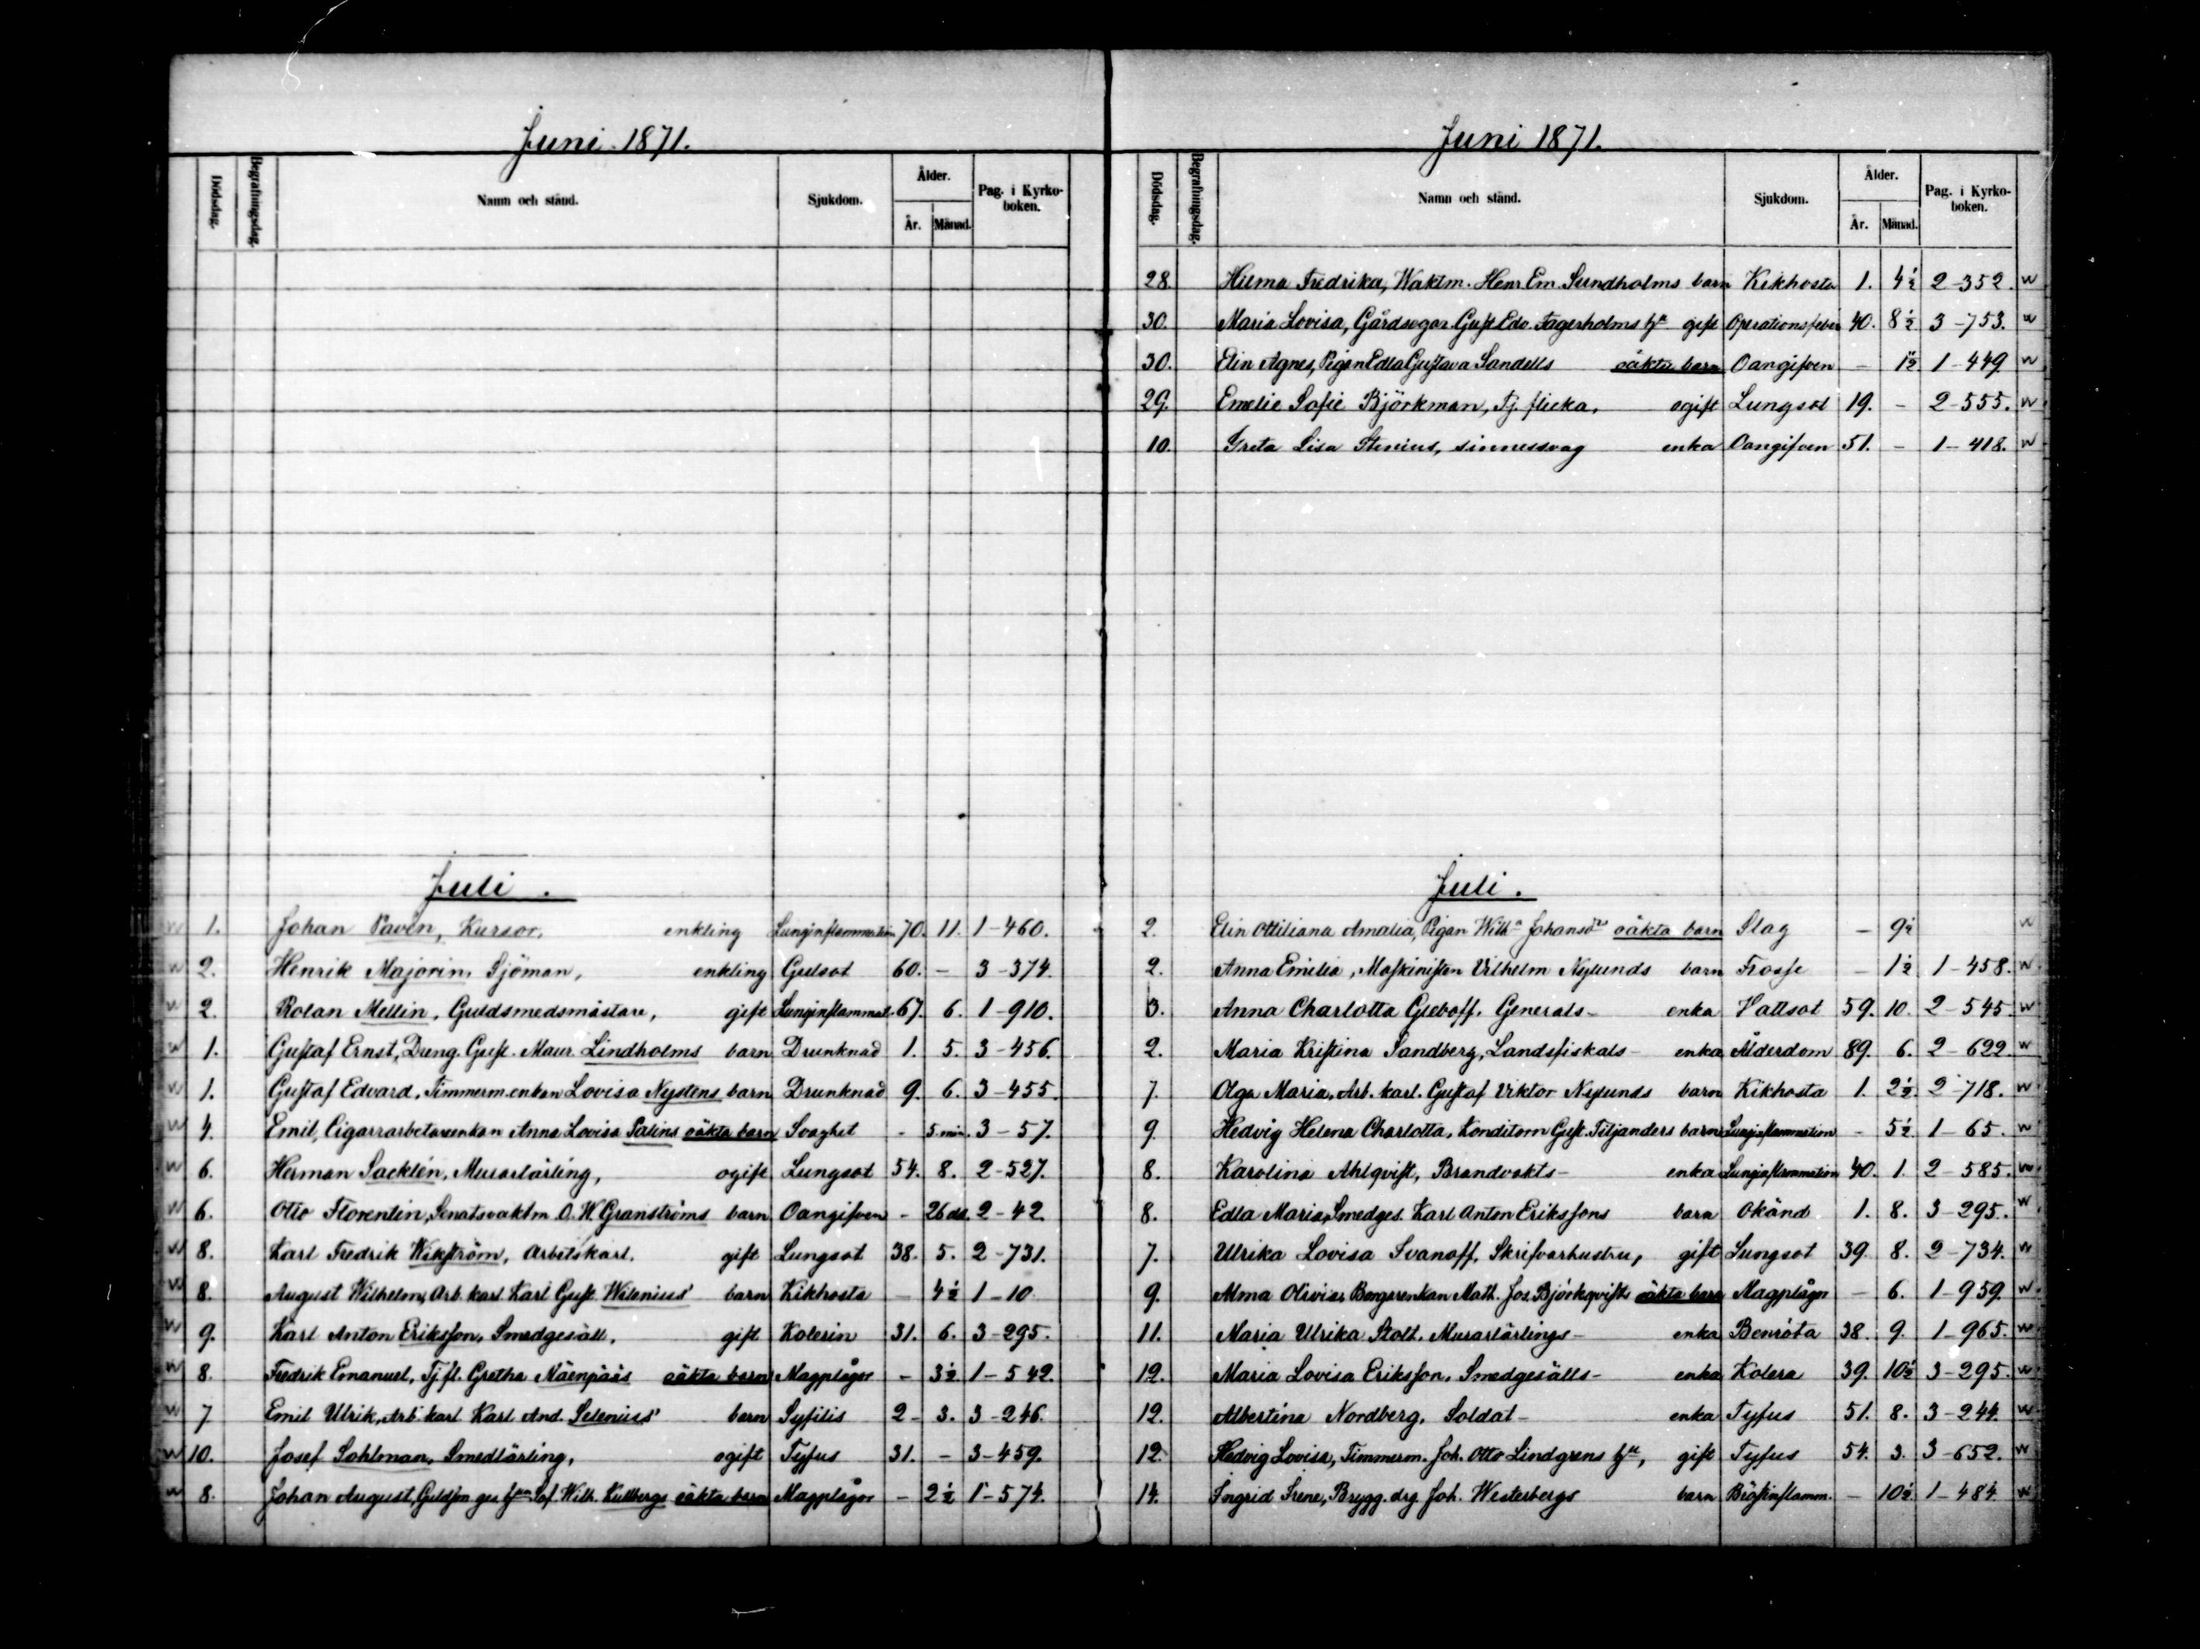 Juni 1871.
Dödsdag. Begrafningsdag. Namn och stånd. Sjukdom. Ålder. År. Månad. Pag. i Kyrko-boken.
Juli.
1. Johan Pavén, Kursor, enkling Lunginflammation 70. 11. 1-460.
2. Henrik Majorin, Sjöman, enkling Gulsot 60. - 3-374.
2. Rolan Mellin, Guldsmedsmästare, gift Lunginflammat. 67. 6. 1-910.
1. Gustaf Ernst, Dreng. Gust. Maur. Lindholms barn Drunknad 1. 5. 3-456.
1. Gustaf Edvard, Timmerm.enkan Lovisa Nystens barn Drunknad 9. 6. 3-455.
4. Emil, Cigarrarbetareenkan Anna Lovisa Palins oäkta barn Svaghet - 5 min. 3-57.
6. Herman Sacklén, Murarlärling, ogift Lungsot 54. 8. 2-527.
6. Otto Florentin, Senatsvaktm. O. W. Granströms barn Oangifven - 26 da. 2-42.
8. Karl Fredrik Wikström, Arbetskarl. gift Lungsot 38. 5. 2-731.
8. August Wilhelm, Arb. karl Karl Gust. Wilenius' barn Kikhosta - 4½ 1-10
9. Karl Anton Eriksson, Smedgesäll, gift Kolerin 31. 6. 3-295.
8. Fredrik Emanuel, Tj. fl. Gretha Näenpääs oäkta barn Magplågor - 3½ 1-542.
7 Emil Ulrik, Arb. karl Karl And. Selenius' barn Syfilis 2- 3. 3-246.
10. Josef Sohlman, Smedlärling, ogift Tyfus 31. - 3-459.
8. Johan August, Guldsm. ges. Sof. Wilh. Kullbergs oäkta barn Magplågor - 2½ 1-574.
Juni 1871.
Dödsdag. Begrafningsdag. Namn och stånd. Sjukdom. Ålder. År. Månad. Pag. i Kyrko-boken.
28. Hilma Fredrika, Waktm. Henr. Em. Sundholms barn Kikhosta 1. 4½ 2-352. w
30. Maria Lovisa, Gårdsegar. Gust. Edv. Fagerholms hu gift Operationsfeber 40. 8½ 3-753. w
30. Elin Agnes, Pigan Edla Gustava Sandells oäkta barn Oangifven - 1½ 1-449 w
29. Emelie Sofie Björkman, Tj. flicka, ogift Lungsot 19. - 2-555. w
10. Greta Lisa Stenius, sinnessvag enka Oangifven 51. - 1-418. w
Juli.
2. Elin Ottiliana Amalia, Pigan Wilh:a Johansdrs oäkta barn Slag - 9½ w
2. Anna Emilia, Maskinisten Vilhelm Nylunds barn Frosse - 1½ 1-458. w
3. Anna Charlotta Gleboff, Generals- enka Vattsot 59. 10. 2-545 w
2. Maria Kristina Sandberg, Landsfiskals- enka Ålderdom 89. 6. 2-622. w
7. Olga Maria, Arb. karl. Gustaf Viktor Nylunds barn Kikhosta 1. 2½ 2-718. w
9. Hedvig Helena Charlotta, Konditorn Gust. Tiljanders barn Lunginflammation - 5½ 1-65. w
8. Karolina Ahlqvist, Brandvakts- enka Lunginflammation 40. 1. 2-585. w
8. Edla Maria, Smedges. Karl Anton Erikssons barn Okänd 1. 8. 3-295. w
7. Ulrika Lovisa Ivanoff, Skrifvarhustru, gift Lungsot 39. 8. 2-734. w
9. Alma Olivia, Borgarenkan Math. Jos. Björkqvists oäkta barn Magplågor - 6. 1-959. w
11. Maria Ulrika Stolt, Murarlärlings- enka Benröta 38. 9. 1-965. w
12. Maria Lovisa Eriksson, Smedgesälls- enka Kolera 39. 10½ 3-295. w
12. Albertina Nordberg, Soldat- enka Tyfus 51. 8. 3-244. w
12. Hedvig Lovisa, Timmerm. Joh. Otto Lindgrens hu, gift Tyfus 54. 3. 3-652. w
14. Ingrid Irene, Brygg. drg Joh. Westerbergs barn Bröstinflamm. - 10½ 1-484 w